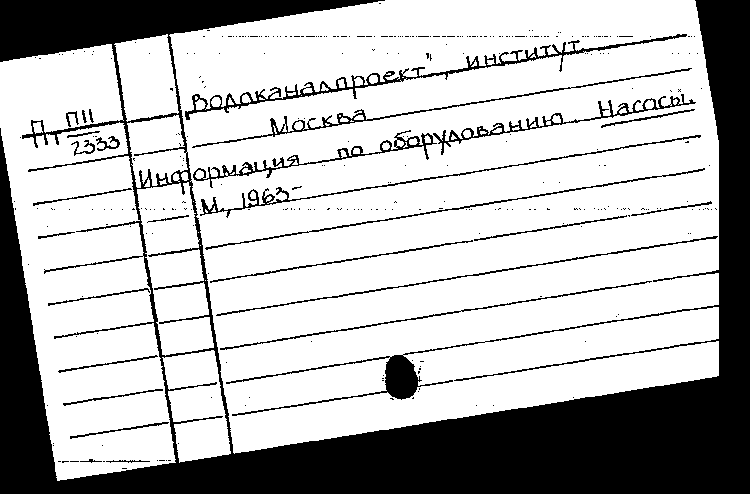 „Водоканалпроект", институт
Пт П11
2333
Москва
Информация по оборудованию. Насосы.
М., 1963-